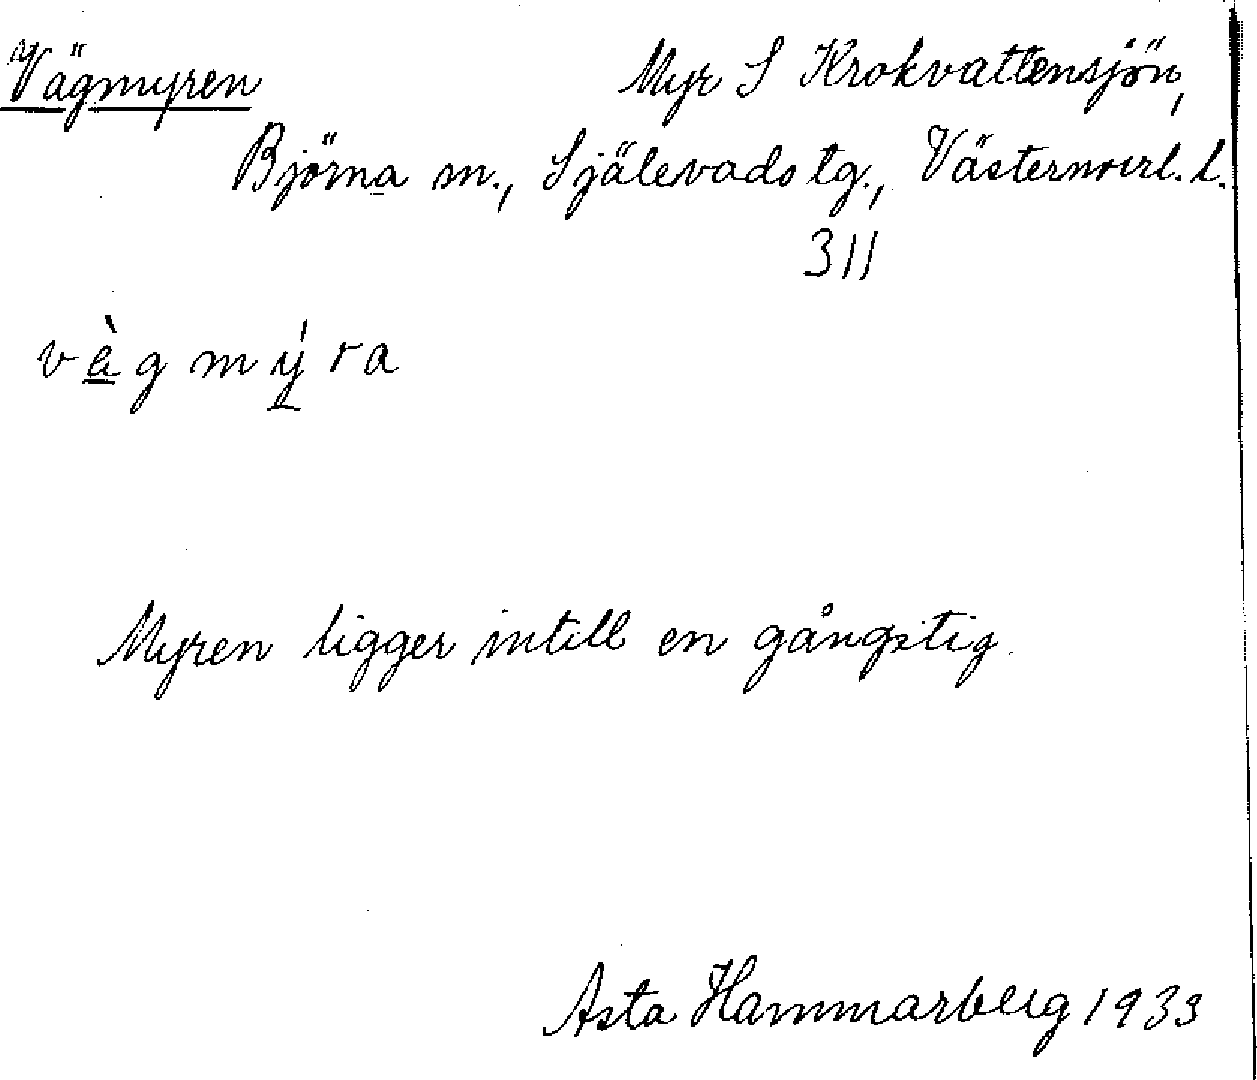 Vägmyren Myr S Krokvattensjön,
Björna sn., Själevads tg., Västernorrl. l.
311
vègmýra
Myren ligger intill en gångstig.
Asta Hammarberg 1933